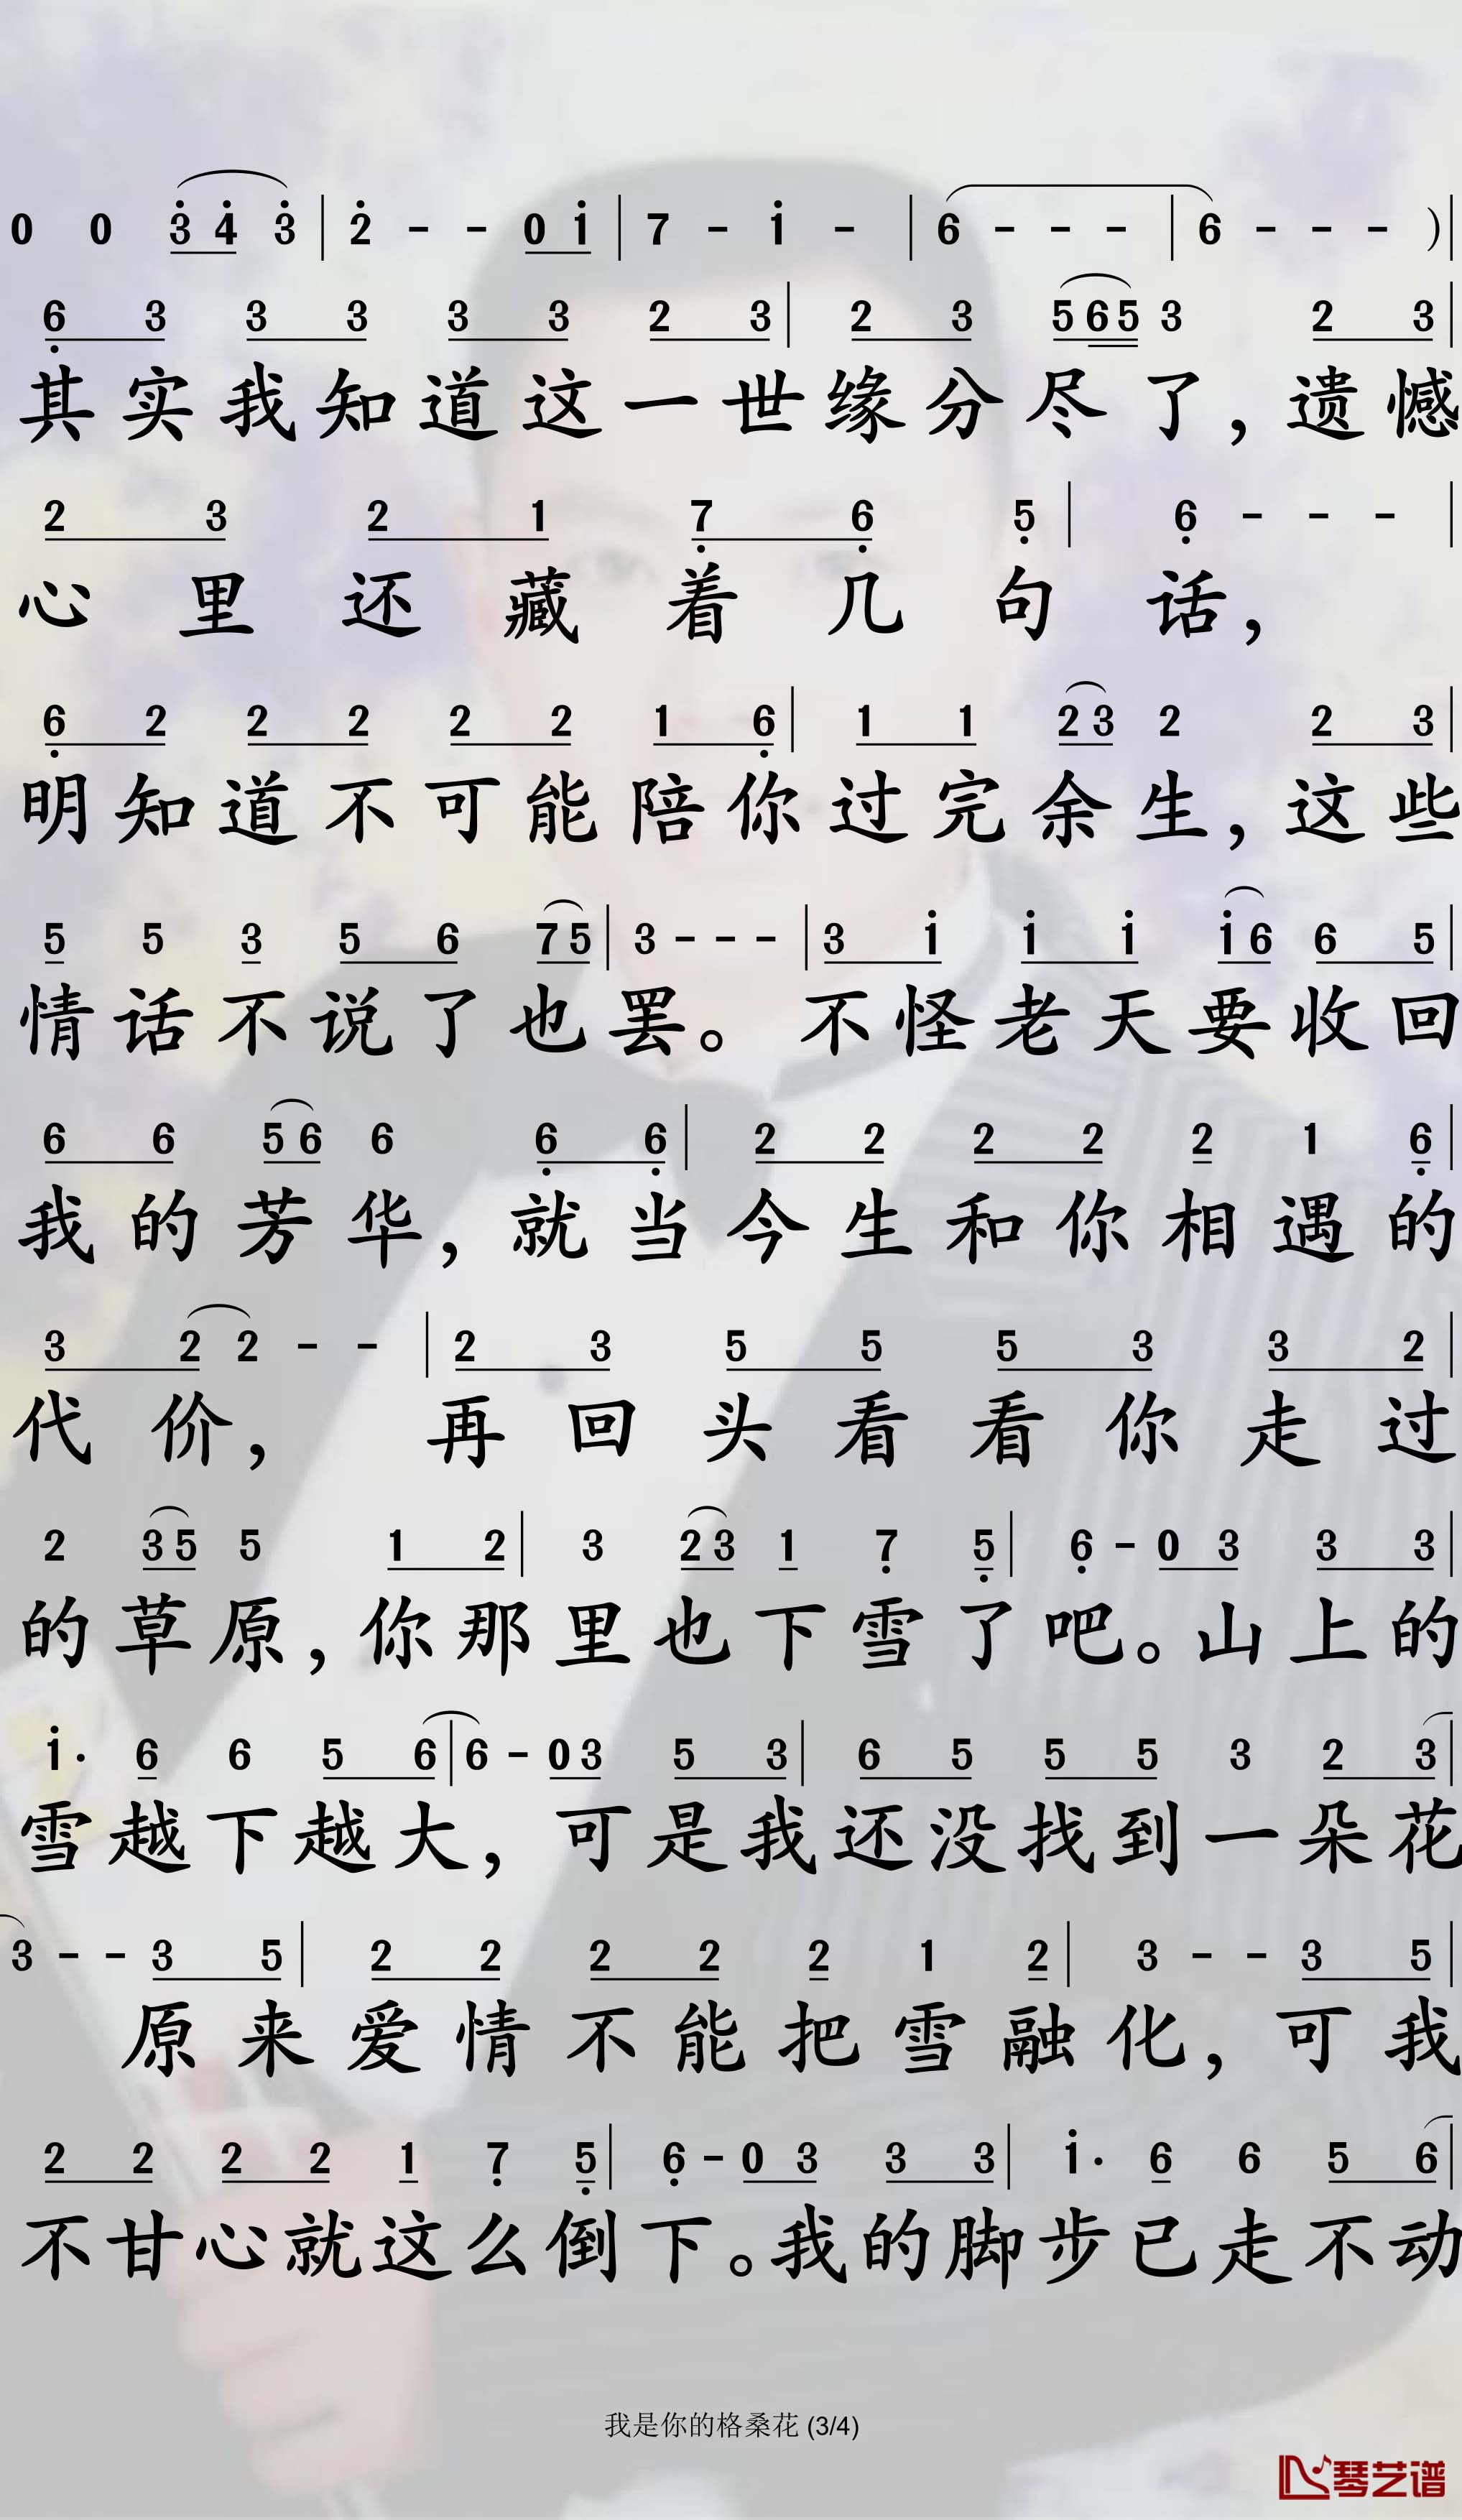 0 0 3 4 3 | 2 - - 0 1 | 7 - 1 - | 6 - - - | 6 - - - ) |
6 3 3 3 3 3 2 3 | 2 3 5 6 5 3 2 3 |
其实我知道这一世缘分尽了，遗憾
2 3 2 1 7 6 5 | 6 - - - |
心里还藏着几句话，
6 2 2 2 2 2 1 6 | 1 1 2 3 2 2 3 |
明知道不可能陪你过完余生，这些
5 5 3 5 6 7 5 | 3 - - - | 3 1 1 1 1 6 6 5 |
情话不说了也罢。不怪老天要收回
6 6 5 6 6 6 6 | 2 2 2 2 2 1 6 |
我的芳华，就当今生和你相遇的
3 2 2 - - | 2 3 5 5 5 3 3 2 |
代价，再回头看看你走过
2 3 5 5 1 2 | 3 2 3 1 7 5 | 6 - 0 3 3 3 |
的草原，你那里也下雪了吧。山上的
1 · 6 6 5 6 | 6 - 0 3 5 3 | 6 5 5 5 3 2 3 |
雪越下越大，可是我还没找到一朵花
3 - - 3 5 | 2 2 2 2 2 1 2 | 3 - - 3 5 |
原来爱情不能把雪融化，可我
2 2 2 2 1 7 5 | 6 - 0 3 3 3 | 1 · 6 6 5 6 |
不甘心就这么倒下。我的脚步已走不动
我是你的格桑花 (3/4)
琴艺谱